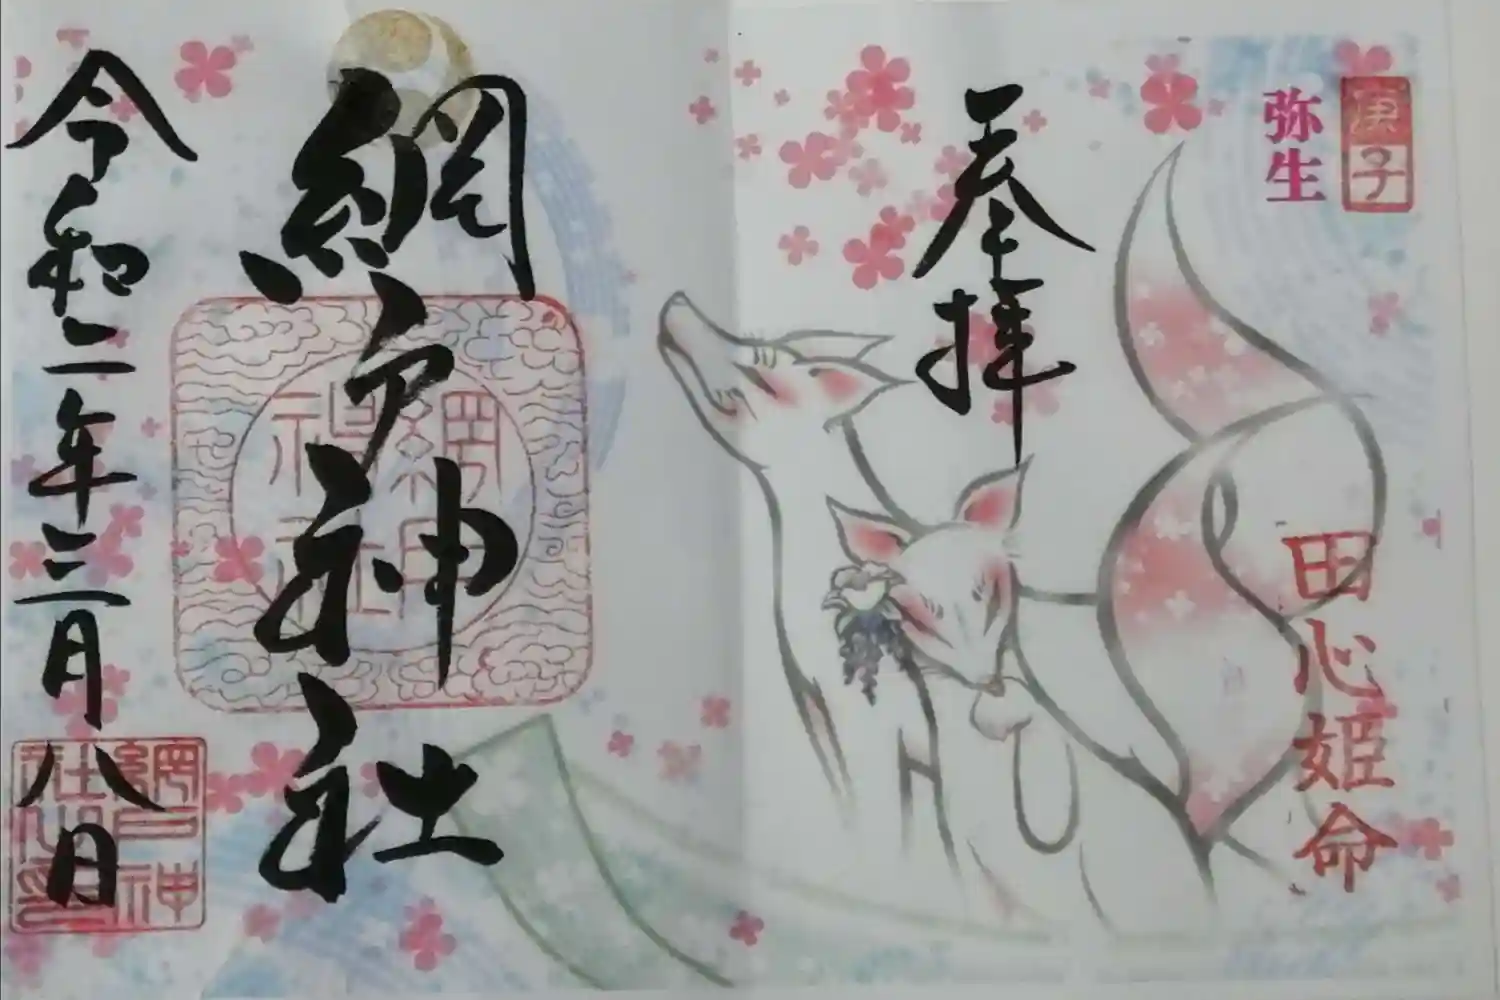 庚子
弥生
奉拝
田心姫命
網戸神社
網戸神社
令和二年三月八日
網戸神社之印